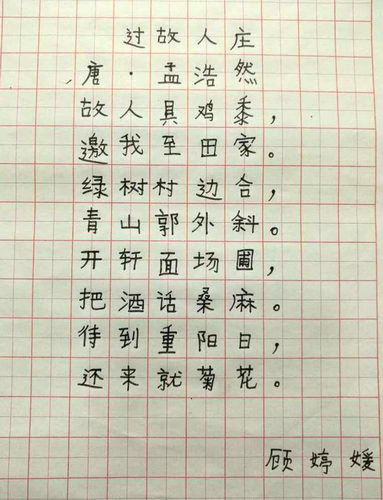 过故人庄
唐·孟浩然
故人具鸡黍，
邀我至田家。
绿树村边合，
青山郭外斜。
开轩面场圃，
把酒话桑麻。
待到重阳日，
还来就菊花。
顾婷媛